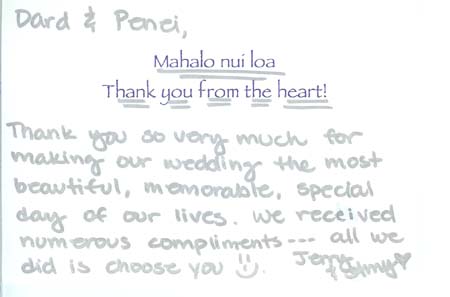 Dard & Penei,
Mahalo nui loa
Thank you from the heart!
Thank you so very much for
making our wedding the most
beautiful, memorable, special
day of our lives. We received
numerous compliments --- all we
did is choose you
Jerry
&